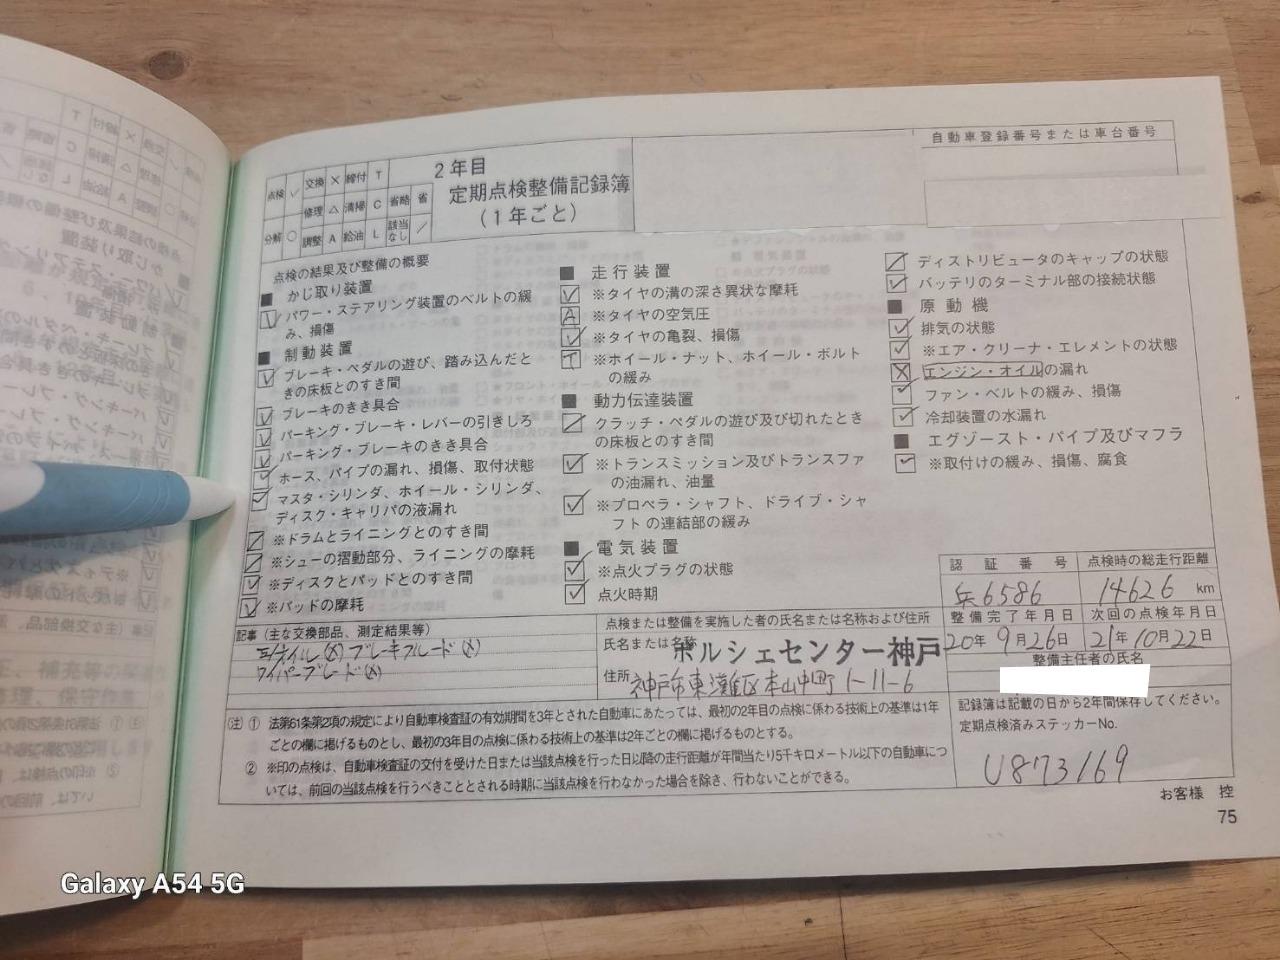 自動車登録番号または車台番号
点検 ✓ 交換 × 締付 T
修理 △ 清掃 C 省略 省
分解 ○ 調整 A 給油 L 該当なし /
2年目
定期点検整備記録簿
(1年ごと)
点検の結果及び整備の概要
■ かじ取り装置
✓ パワー・ステアリング装置のベルトの緩
み、損傷
■ 制動装置
✓ ブレーキ・ペダルの遊び、踏み込んだと
きの床板とのすき間
✓ ブレーキのきき具合
✓ パーキング・ブレーキ・レバーの引きしろ
✓ パーキング・ブレーキのきき具合
✓ ホース、パイプの漏れ、損傷、取付状態
✓ マスタ・シリンダ、ホイール・シリンダ、
ディスク・キャリパの液漏れ
/ ※ドラムとライニングとのすき間
/ ※シューの摺動部分、ライニングの摩耗
✓ ※ディスクとパッドとのすき間
✓ ※パッドの摩耗
■ 走行装置
✓ ※タイヤの溝の深さ異状な摩耗
A ※タイヤの空気圧
✓ ※タイヤの亀裂、損傷
T ※ホイール・ナット、ホイール・ボルト
の緩み
■ 動力伝達装置
/ クラッチ・ペダルの遊び及び切れたとき
の床板とのすき間
✓ ※トランスミッション及びトランスファ
の油漏れ、油量
✓ ※プロペラ・シャフト、ドライブ・シャ
フトの連結部の緩み
■ 電気装置
✓ ※点火プラグの状態
✓ 点火時期
/ ディストリビュータのキャップの状態
✓ バッテリのターミナル部の接続状態
■ 原動機
✓ 排気の状態
✓ ※エア・クリーナ・エレメントの状態
× エンジン・オイルの漏れ
✓ ファン・ベルトの緩み、損傷
✓ 冷却装置の水漏れ
■ エグゾースト・パイプ及びマフラ
✓ ※取付けの緩み、損傷、腐食
記事(主な交換部品、測定結果等)
E/オイル(×) ブレーキフルード(×)
ワイパーブレード(×)
点検または整備を実施した者の氏名または名称および住所
氏名または名称 ポルシェセンター神戸
住所 神戸市東灘区本山中町1-11-6
認証番号 点検時の総走行距離
兵6586 14626 km
整備完了年月日 次回の点検年月日
20年9月26日 21年10月22日
整備主任者の氏名
記録簿は記載の日から2年間保存してください。
定期点検済みステッカーNo.
U873169
(注) ① 法第61条第2項の規定により自動車検査証の有効期間を3年とされた自動車にあたっては、最初の2年目の点検に係わる技術上の基準は1年
ごとの欄に掲げるものとし、最初の3年目の点検に係わる技術上の基準は2年ごとの欄に掲げるものとする。
② ※印の点検は、自動車検査証の交付を受けた日または当該点検を行った日以降の走行距離が年間当たり5千キロメートル以下の自動車につ
いては、前回の当該点検を行うべきこととされる時期に当該点検を行わなかった場合を除き、行わないことができる。
お客様 控
75
Galaxy A54 5G